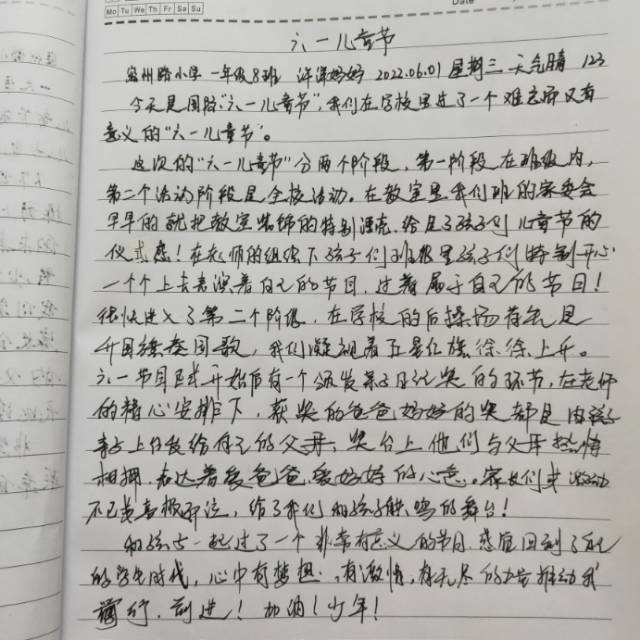 Mo Tu We Th Fr Sa Su
Date
六一儿童节
密州路小学 一年级8班 洋洋妈妈 2022.06.01 星期三 天气晴 123
今天是国际"六一儿童节",我们在学校里过了一个难忘而又有
意义的"六一儿童节"。
这次的"六一儿童节"分两个阶段,第一阶段在班级内,
第二个活动阶段是全校活动。在教室里我们班的家委会
早早的就把教室装饰的特别漂亮,给足了孩子们儿童节的
仪式感!在老师的组织下孩子们班级里孩子们特别开心
一个个上去表演着自己的节目,过着属于自己的节日!
很快进入了第二个阶段,在学校的后操场首先是
升国旗奏国歌,我们凝视着五星红旗徐徐上升。
六一节目正式开始后有一个颁发亲子日记奖的环节,在老师
的精心安排下,获奖的爸爸妈妈的奖都是由孩子
亲手上台发给自己的父母,奖台上他们与父母热情
相拥,表达着爱爸爸爱妈妈的心意。家长们激动
不已,给了我们和孩子的舞台!
和孩子一起过了一个非常有意义的节日,感觉回到了自己
的学生时代,心中有梦想,有激情,有无尽的力量推动我
前行,前进!加油!少年!